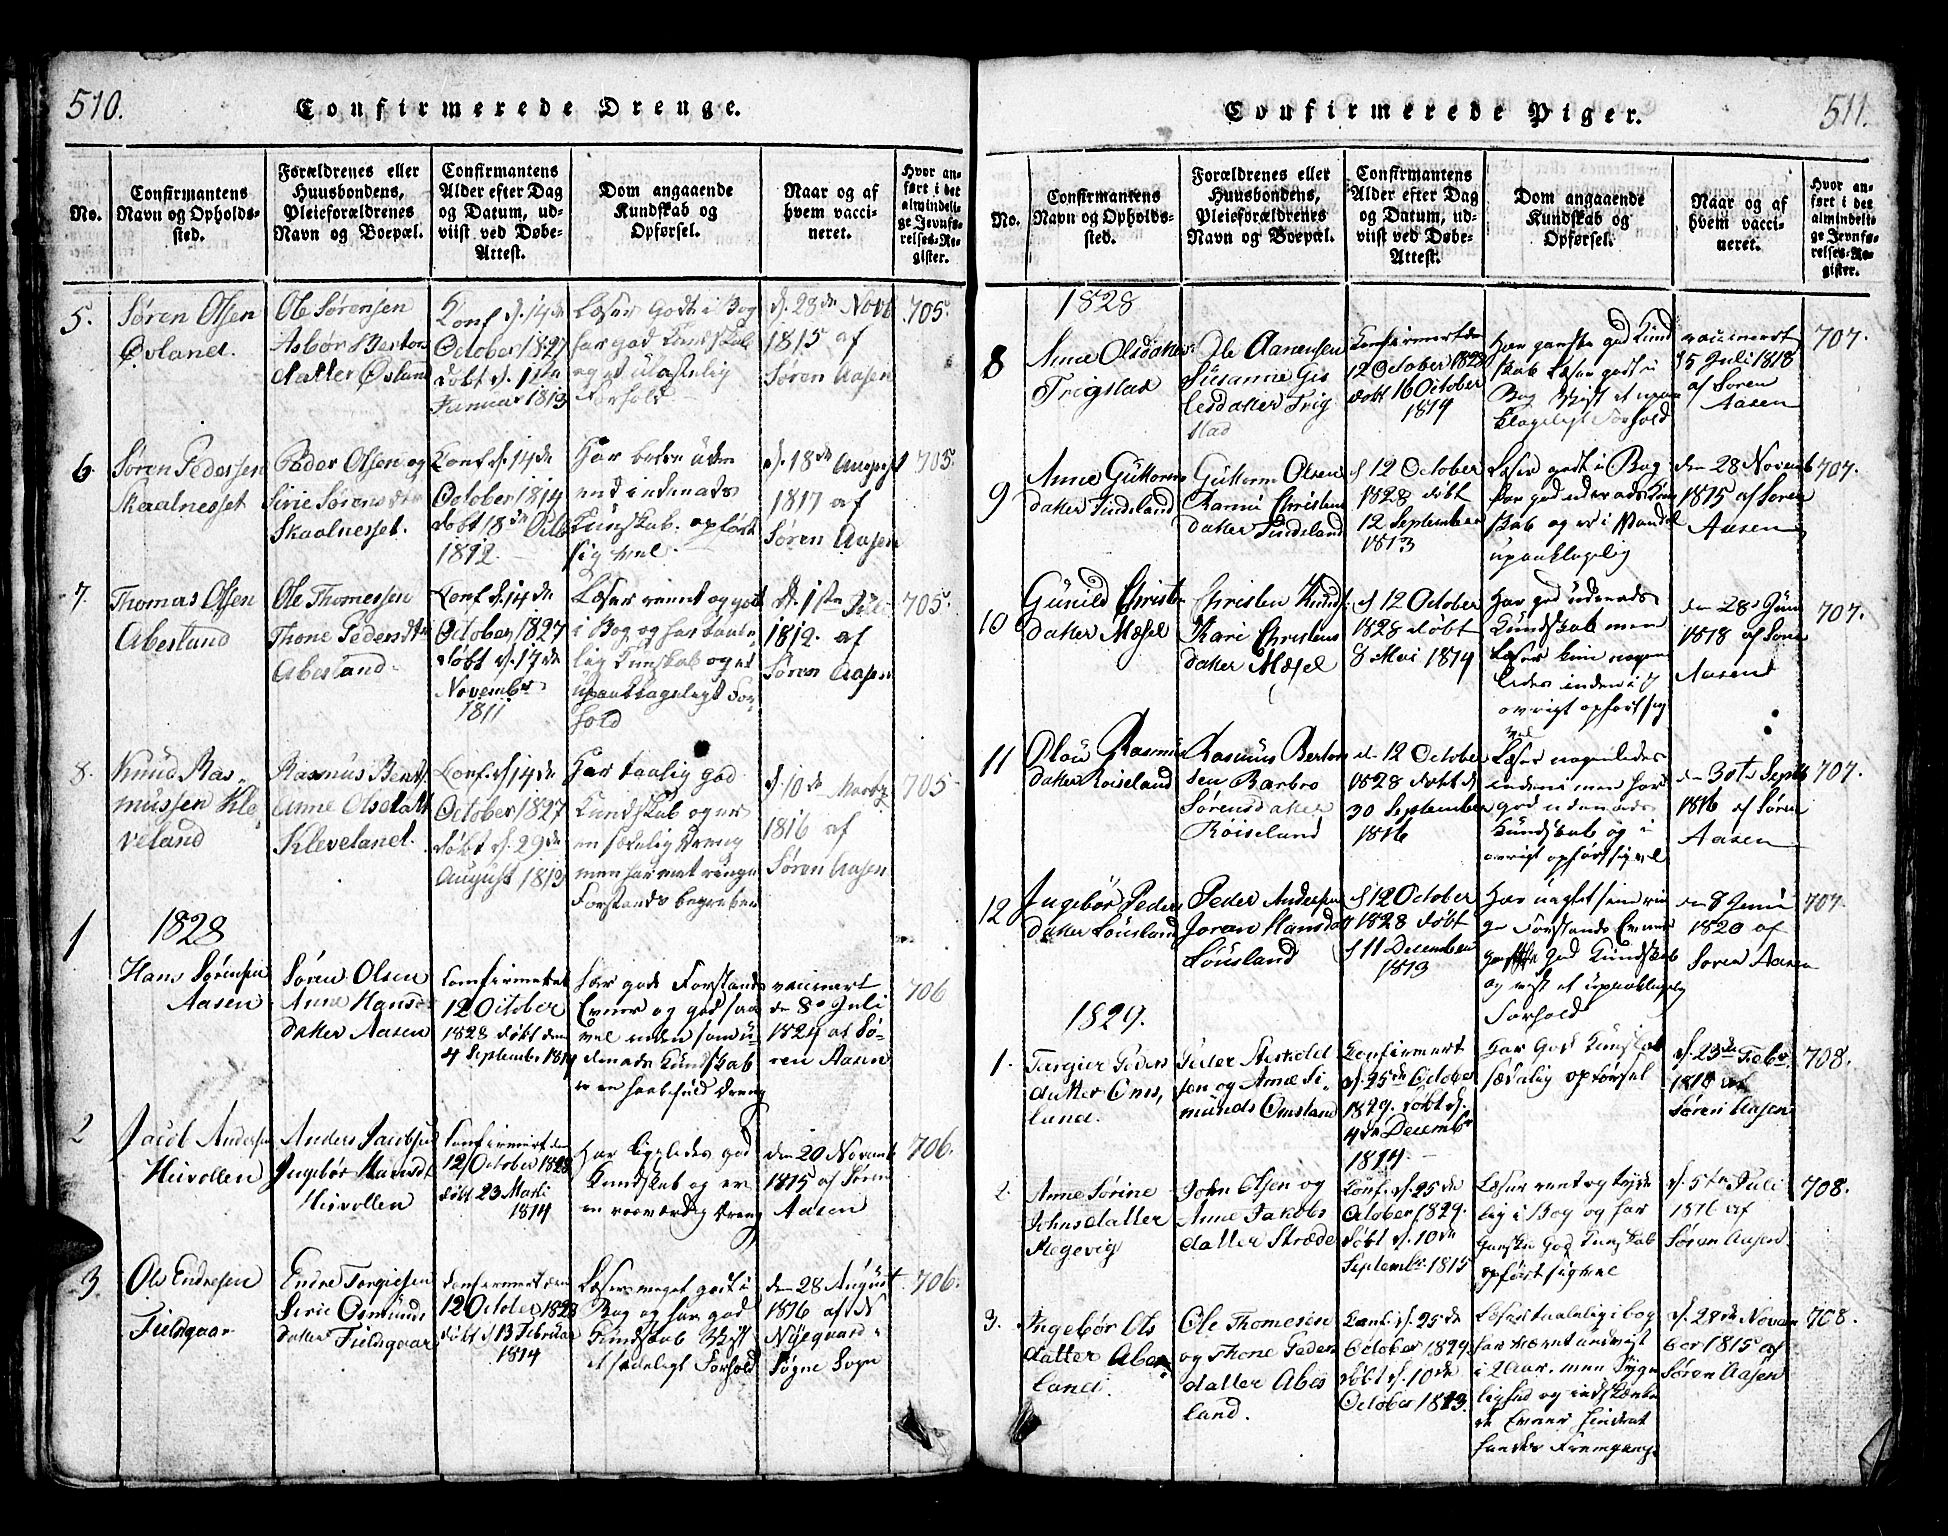 510.
Confirmerede Drenge.
No.
Confirmantens
Navn og Opholds-
sted.
Forældrenes eller
Huusbondens,
Pleieforældrenes
Navn og Boepæl.
Confirmantens
Alder efter Dag
og Datum, ud-
viist ved Døbe-
Attest.
Dom angaaende
Kundskab og
Opførsel.
Naar og af
hvem vacci-
neret.
Hvor an-
ført i det
almindeli-
ge Jevnfø-
relses-Re-
gister.
5.
Søren Olsen
Øvland.
Ole Sørensen
Asbør Berton
datter Øvland
Konf d. 14de
October 1827
døbt d. 1ste
Januar 1813
Læser Godt i Bog
har god Kundskab
og et ulastelig
Forhold
d. 28de Novb
1815 af
Søren Aasen
705.
6
Søren Pedersen
Skaalnesset
Peder Olsen og
Sirie Sørensdtr
Skaalnesset.
Konf d. 14de
October 1814
døbt 18de Octb
1812.
har bedre uden
end indenads
Kunskab. opført
sig vel.
d. 18de August
1817 af
Søren Aasen
705.
7.
Thomas Olsen
Abestand
Ole Thomessen
Thone Pedersdtr
Abestand.
Konf d. 14de
October 1827
døbt d. 14de
Novembr
1811
Læser rent og godt
i Bog og har taale-
lig Kunskab og et
upaaklageligt For-
hold
d. 1ste Juli
1812. af
Søren Aasen
705.
8.
Knud Ras-
mussen Kle-
veland
Rasmus Bents.
Anne Olsdatt
Kleveland.
Konf d. 14de
October 1827
døbt d. 29de
August 1813
Har taalig god
Kundskab og er
en sædelig Dreng
men har mat ringe
Forstands begreber
d. 10de
1816 af
Søren Aasen
705
1
1828
Hans Sørensen
Aasen
Søren Olsen
Anne Hans-
datter Aasen
Confirmeret
12 October
1828 døbt den
4 September 1814
har gode Forstands
Evner og god saa
vel inden som u-
denads Kundskab
er en haabefuld Dreng
vaccinert
de 8de Juli
1824 af Sø-
ren Aasen
706
2
Jacob Anders
Heivollen
Anders Jacobsen
Ingebør Hansdt
Heivollen
Confirmert den
12 October 1828
døbt 23 Marti
1814
Har ligeledes god
Kundskab og er
en roesværdig Dreng
den 20 Novemb
1815 af Søren
Aasen
706.
3.
Ole Endresen
Fieldsgaar
Endre Torgiesen
Serie Osmunds
datter Fieldsgaar
Confirmert den
12 October 1828
døbt d 13 Februar
1814
Læser meget godt i
Bog og har god
Kundskab Viist
et sædeligt Forhold
den 28 August
1816 af de
Nyegaard i
Søgne Sogn
706.
511.
Confirmerede Piger.
No.
Confirmantens
Navn og Opholds-
sted.
Forældrenes eller
Huusbondens,
Pleieforældrenes
Navn og Boepæl.
Confirmantens
Alder efter Dag
og Datum, ud-
viist ved Døbe-
Attest.
Dom angaaende
Kundskab og
Opførsel.
Naar og af
hvem vacci-
neret.
Hvor an-
ført i det
almindeli-
ge Jevnfø-
relses-Re-
gister.
1828
8
Anne Olsdatter
Trigstad
Ole Aanensen
Susanne Gis
lesdatter Trig
stad
Confirmert den
12 October 1828
døbt 16 October
1814
Har ganske god Kund
skab Læser godt i
Bog Viist et upaa
klageligt Forhold
vaccinert
15 Juli 1818
af Søren
Aasen
707.
9
Anne Guttorms
datter Tindeland
Guttorm Olsen
Karrine Christens
datter Tindeland
d 12 October
1828 døbt
12 September
1813
Læser godt i Bog
har god udenads Kun
skab og er i Vandel
upaaklagelig
den 28 Novemb
1815 af Søren
Aasen
707.
10
Gunild Christe
datter Mæsel
Christen Knuds
Kari Christens
datter Mæsel
d 12 October
1828 døbt
8 Mai 1814
Har god udenads
Kundskab men
læser kun nogen
ledes inden i Ø
ovrigt opført sig
vel
den 28de Juni
1818 af Søren
Aasen
707.
11
Olou Rasmus
datter Røiseland
Rasmus Berton
sen Barbro
Sørensdatter
Røiseland
d. 12 October
1828 døbt d
30 September
1816
Læser nogenledes
indeni men har
god udenads
Kundskab og i
ovrigt opført sig vel
den 30te Septb
1816 af Søren
Aasen
707.
12
Ingebør Peders
datter Lousland
Peder Andersen
Joran Hansda
Lousland
d 12 October
1828 døbt
d 11 Decemben
1813
Har uagtet sine rin
ge Forstands Evner
god Kundskab
og viist et upaaklagelig
Forhold
den 8 Juni
1820 af
Søren Aasen
707.
1829.
1.
Tærgier Peders
datter Oms,
land.
Peder
sen og Anne Si-
munds Omsland
Confirmert
d. 25de October
1829. døbt d.
4de Decembr
1814.
Har God Kunskab
sædelig opførsel
d. 23de Febr.
1818 af
Søren Aasen
708.
2.
Anne Sørine
Johnsdatter
Flegevig
John Olsen og
Anne Jakobs
datter Stræde
Konf. d. 25de
October 1829.
døbt d. 10de
Septembr. 1815
Læser rent og tyde
lig i Bog og har
Ganske God Kunskab
opført sig vel
d. 5te Juli
1816 af
Søren Aasen
708.
3.
Ingebør Ols
datter Abes-
land.
Ole Thomesen
og Thone Peders
datter Abes
land.
Konf. d. 25de
October 1829.
døbt d. 10de
October 1813.
Læser taalelig i bog
har været undviist
i 2 Aar. men Syge
lighed og indskrænke
de Evner hindret
hendes Fremgang.
d. 28de Novem
ber 1815 af
Søren Aasen
708.